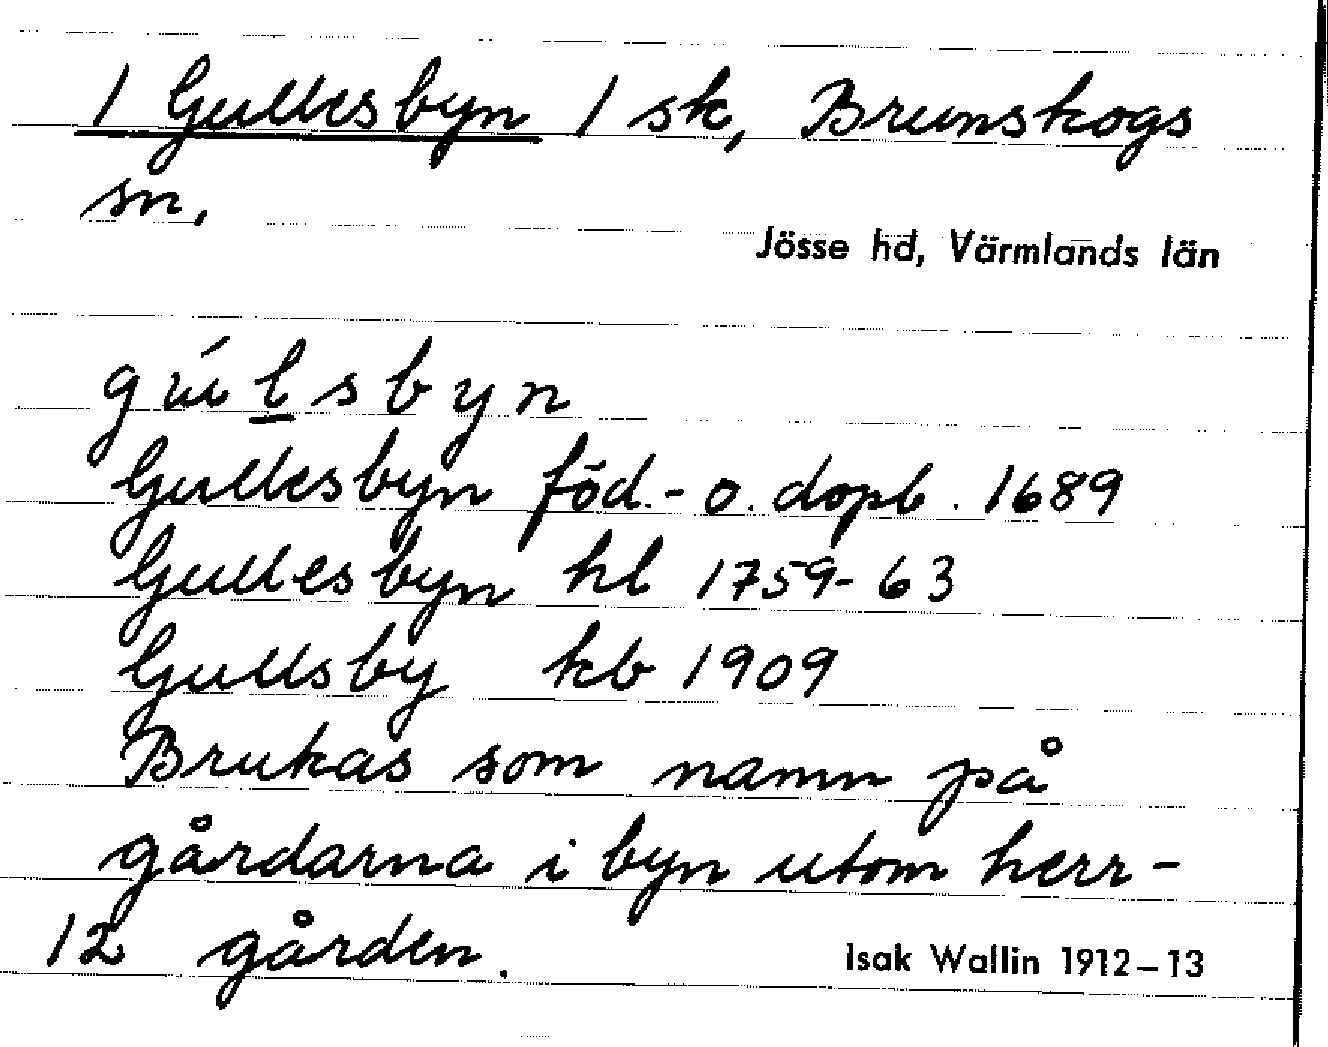 / Gullesbyn / sk, Brunskogs
sn.
Jösse hd, Värmlands län
gúlsbyn
Gullesbyn föd.- o. dopb. 1689
Gullesbyn hl 1759-63
Gullsby kb 1909
Brukas som namn på
gårdarna i byn utom herr-
12 gården.
Isak Wallin 1912–13